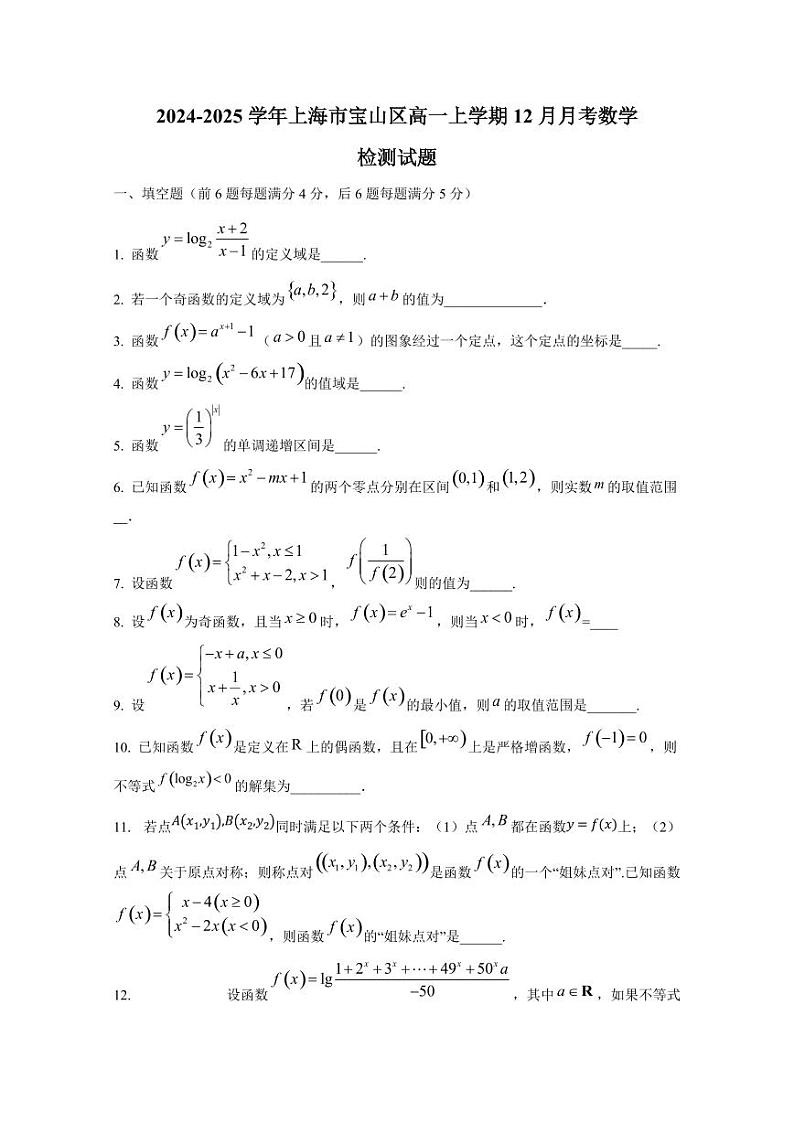 2024-2025 学年上海市宝山区高一上学期 12 月月考数学
检测试题
一、填空题（前 6 题每题满分 4 分，后 6 题每题满分 5 分）
1. 函数 y = log₂ (x+2)/(x−1) 的定义域是______.
2. 若一个奇函数的定义域为 {a,b,2}，则 a+b 的值为______________.
3. 函数 f(x)=a^(x+1) −1（a>0 且 a≠1）的图象经过一个定点，这个定点的坐标是_____.
4. 函数 y = log₂(x² −6x+17) 的值域是______.
5. 函数 y = (1/3)^|x| 的单调递增区间是______.
6. 已知函数 f(x)= x² − mx+1 的两个零点分别在区间 (0,1) 和 (1,2)，则实数 m 的取值范围
__.
7. 设函数 f(x)= {1−x², x≤1; x²+x−2, x>1， f(1/f(2)) 则的值为______.
8. 设 f(x) 为奇函数，且当 x≥0 时， f(x)=eˣ −1，则当 x<0 时， f(x)=____
9. 设 f(x)= {−x+a, x≤0; x+1/x, x>0，若 f(0) 是 f(x) 的最小值，则 a 的取值范围是_______.
10. 已知函数 f(x) 是定义在 R 上的偶函数，且在 [0,+∞) 上是严格增函数， f(−1)=0，则
不等式 f(log₂x)<0 的解集为__________.
11. 若点A(x₁,y₁),B(x₂,y₂)同时满足以下两个条件：（1）点 A,B 都在函数y = f(x)上；（2）
点 A,B 关于原点对称；则称点对 ((x₁,y₁),(x₂,y₂)) 是函数 f(x) 的一个“姐妹点对”.已知函数
f(x)= {x−4(x≥0); x²−2x(x<0)，则函数 f(x) 的“姐妹点对”是______.
12. 设函数 f(x)=lg (1+2ˣ+3ˣ+⋯+49ˣ+50ˣa)/(−50)，其中 a∈R，如果不等式